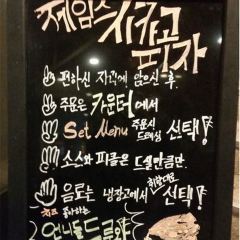 제임스 시카고
피자
편하신 자리에 앉으신 후
주문은 카운터에서
Set Menu 주문시 드레싱 선택!
소스와 피클은 드실만큼만
음료는 냉장고에서 취향대로 선택!
치즈 좋아하는
언니들 드루와